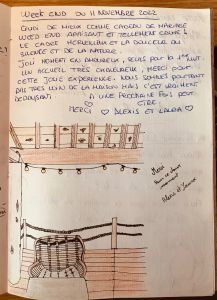 WEEK END DU 11 NOVEMBRE 2022
QUOI DE MIEUX COMME CADEAU DE MARIAGE
WEED END APAISANT ET TELLEMENT CALME !
LE CADRE MERVEILLEUX ET LA DOUCEUR DU
SILENCE ET DE LA NATURE.
JOLI MOMENT EN AMOUREUX, SEULS PAR LA 1ère NUIT.
UN ACCUEIL TRÈS CHALEUREUX, MERCI POUR
CETTE JOLIE EXPERIENCE. NOUS SOMMES POURTANT
PAS TRÈS LOIN DE LA MAISON MAIS C'EST VRAIMENT
DEPAYSANT. A UNE PROCHAINE FOIS PEUT
ETRE
MERCI ♡ ALEXIS ET LAURA ♡
Merci
Pour ce
moment
et